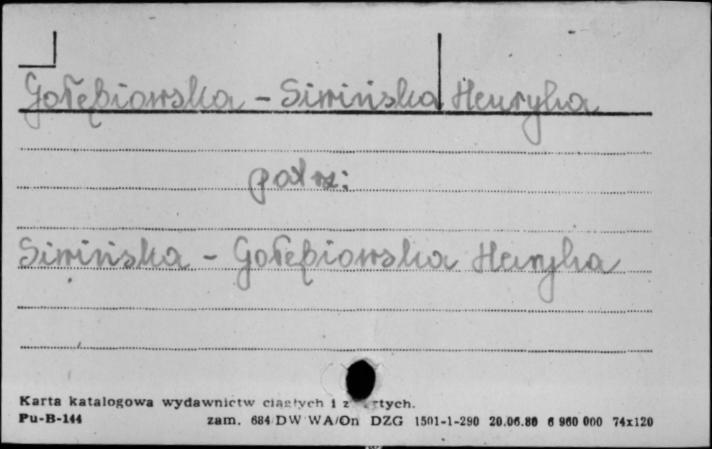 Gołębiowska - Siwińska Henryka
patrz:
Siwińska - Gołębiowska Henryka
Karta katalogowa wydawnictw ciągłych i z rtych.
Pu-B-144 zam. 684/DW WA/On DZG 1501-1-290 20.06.80 6 960 000 74x120